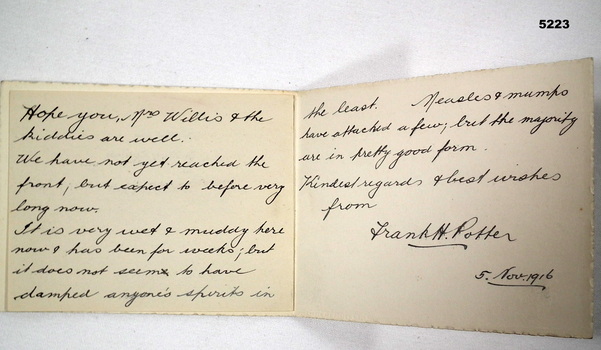 5223
Hope you, Mrs Willis & the
kiddies are well.
We have not yet reached the
front, but expect to before very
long now.
It is very wet & muddy here
now & has been for weeks, but
it does not seem to have
damped anyone's spirits in
the least. Measles & mumps
have attacked a few, but the majority
are in pretty good form.
Kindest regards & best wishes
from
Frank H. Potter
5. Nov. 1916